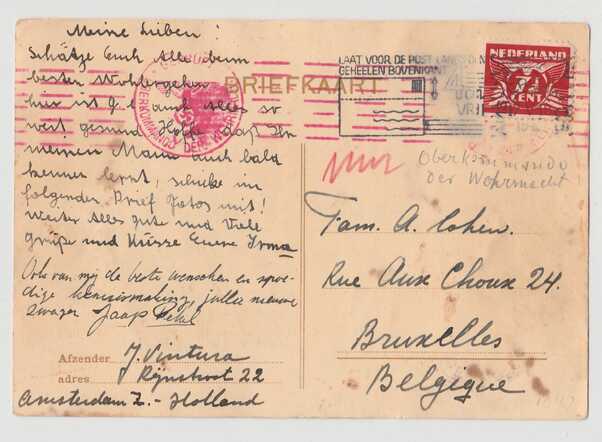 Meine Lieben!
Schätze Euch Alle beim
besten Wohlergehen
hier ist g. l. auch alles so
weit gesund. Hoffe, dass Ihr
meinen Mann auch bald
kennen lernt, schicke im
folgenden Brief Fotos mit!
Weiter Alles gute und Viele
grüße und Küsse Euere Irma
Ook van mij de beste wenschen en spoe-
dige kennismaking, jullie nieuwe
zwager Jaap
BRIEFKAART
LAAT VOOR DE POST
GEHEELEN BOVENKANT
NEDERLAND
7½
CENT
Oberkommando
der Wehrmacht
Fam. A. Cohen.
Rue Aux Choux 24.
Bruxelles
Belgique
Afzender J. Vintura
adres Rijnstraat 22
Amsterdam Z. - Holland